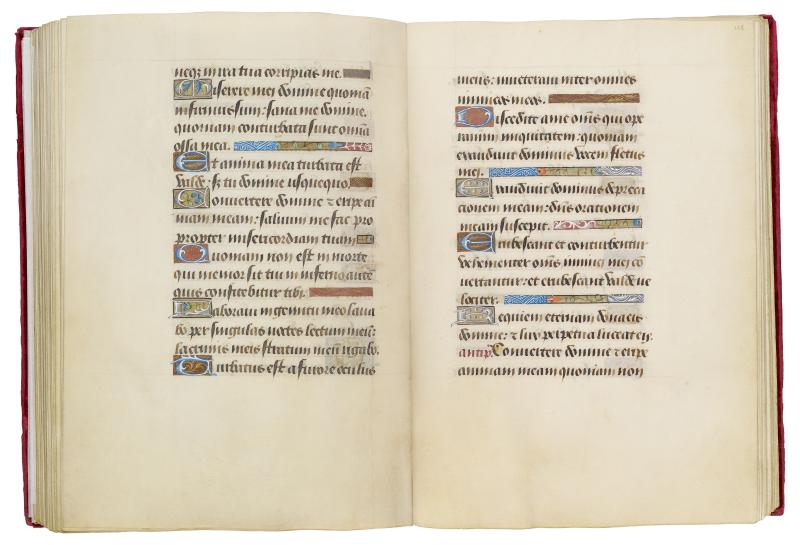 neq3 in ira tua corripias me.
Miserere mei domine quoniā
infirmus sum: sana me domine.
quoniam conturbata sunt omīa
ossa mea.
Et anima mea turbata est
valde: sʒ tu domine usquequo.
Convertere domine ⁊ eripe aī
mam meam: salvum me fac pro
propter misericordiam tuam
Quoniam non est in morte
qui memor sit tui: in inferno autē
quis confitebitur tibi.
Laboravi in gemitu meo lava
bo per singulas noctes lectum meū:
lacrimis meis stratum meū rigabo.
Turbatus est a furore oculus
meus: inveteravi inter omnes
inimicos meos.
Discedite a me omīs qui ope
ramini iniquitatem: quoniam
exaudivit dominus vocem fletus
mei.
Exaudivit dominus depreca
cionem meam: dūs orationem
meam suscepit.
Erubescant et conturbentur
vehementer omīs inimici mei cō
vertantur: et erubescant valde ve
lociter.
Requiem eternam dona eis
domine: ⁊ lux perpetua luceat eis.
antiph̄. Convertere domine ⁊ eripe
animam meam quoniam non